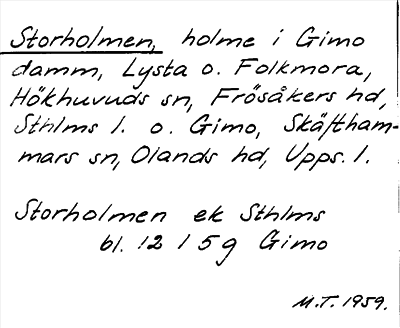 Storholmen, holme i Gimo
damm, Lysta o. Folkmora,
Hökhuvuds sn, Frösåkers hd,
Sthlms l. o. Gimo, Skäftham-
mars sn, Olands hd, Upps. l.
Storholmen ek Sthlms
bl. 12 I 5 g Gimo
M.T. 1959.